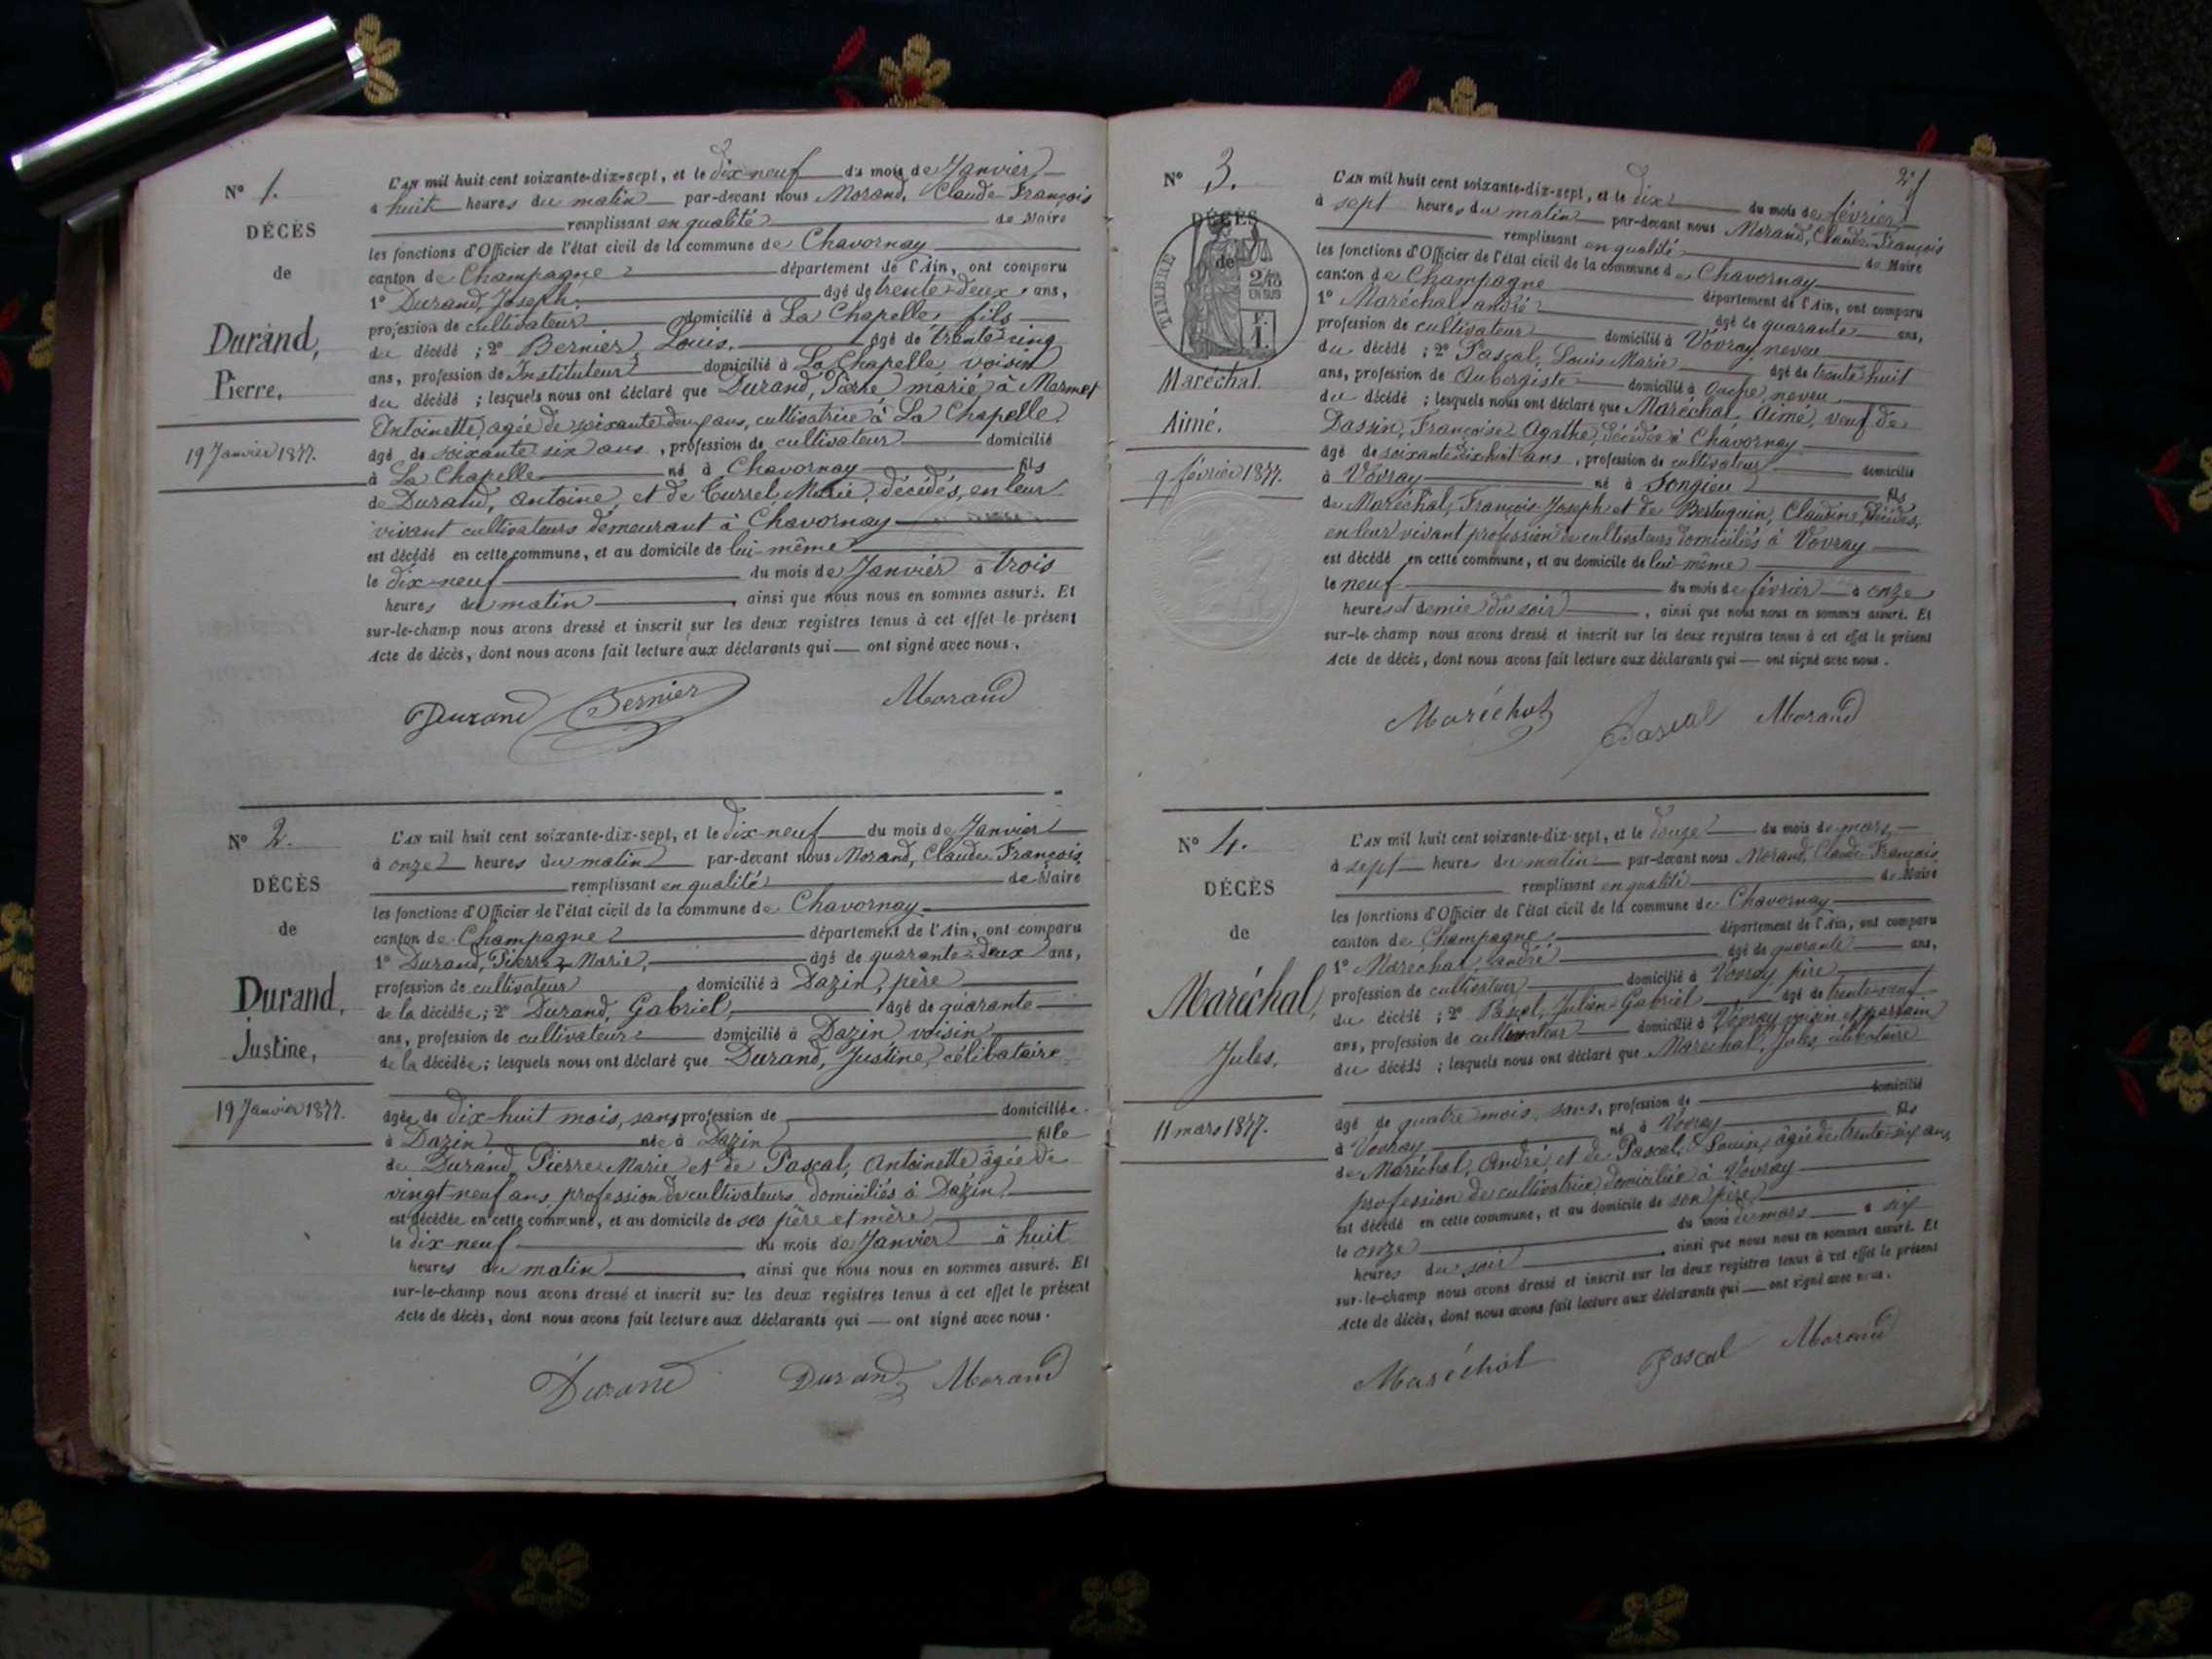 N° 1.
DÉCÈS
de
Durand,
Pierre,
19 Janvier 1877.
L'AN mil huit cent soixante-dix-sept, et le dix-neuf du mois de Janvier
à huit heures du matin par-devant nous Morand, Claude François
remplissant en qualité de Maire
les fonctions d'Officier de l'état civil de la commune de Chavornay
canton de Champagne département de l'Ain, ont comparu
1° Durand, Joseph, âgé de trente-deux ans,
profession de cultivateur domicilié à La Chapelle, fils
du décédé ; 2° Bernier, Louis, âgé de trente-cinq
ans, profession de Instituteur domicilié à La Chapelle, voisin
du décédé ; lesquels nous ont déclaré que Durand, Pierre marié à Marmet
Antoinette, agée de soixante deux ans, cultivatrice à La Chapelle
âgé de soixante six ans, profession de cultivateur domicilié
à La Chapelle né à Chavornay fils
de Durand, Antoine, et de Curret Marie, décédés, en leur
vivant cultivateurs demeurant à Chavornay
est décédé en cette commune, et au domicile de lui-même
le dix-neuf du mois de Janvier à trois
heures du matin, ainsi que nous nous en sommes assuré. Et
sur-le-champ nous avons dressé et inscrit sur les deux registres tenus à cet effet le présent
Acte de décès, dont nous avons fait lecture aux déclarants qui ont signé avec nous.
Durand Bernier Morand
N° 2.
DÉCÈS
de
Durand,
Justine,
19 Janvier 1877.
L'AN mil huit cent soixante-dix-sept, et le dix-neuf du mois de Janvier
à onze heures du matin par-devant nous Morand, Claude François
remplissant en qualité de Maire
les fonctions d'Officier de l'état civil de la commune de Chavornay
canton de Champagne département de l'Ain, ont comparu
1° Durand, Pierre Marie, âgé de quarante-deux ans,
profession de cultivateur domicilié à Dazin, père
de la décédée ; 2° Durand, Gabriel, âgé de quarante
ans, profession de cultivateur domicilié à Dazin, voisin
de la décédée ; lesquels nous ont déclaré que Durand, Justine, célibataire
âgée de dix-huit mois, sans profession de domiciliée
à Dazin née à Dazin fille
de Durand, Pierre Marie et de Pascal, Antoinette âgée de
vingt-neuf ans, profession de cultivateurs domiciliés à Dazin
est décédée en cette commune, et au domicile de ses père et mère
le dix-neuf du mois de Janvier à huit
heures du matin, ainsi que nous nous en sommes assuré. Et
sur-le-champ nous avons dressé et inscrit sur les deux registres tenus à cet effet le présent
Acte de décès, dont nous avons fait lecture aux déclarants qui ont signé avec nous.
Durand Durand Morand
2
N° 3.
DÉCÈS
de
TIMBRE
2/10
EN SUS
F.
1.
Maréchal.
Aimé.
9 février 1877.
L'AN mil huit cent soixante-dix-sept, et le dix du mois de février
à sept heures du matin par-devant nous Morand, Claude François
remplissant en qualité de Maire
les fonctions d'Officier de l'état civil de la commune de Chavornay
canton de Champagne département de l'Ain, ont comparu
1° Maréchal, andré âgé de quarante ans,
profession de cultivateur domicilié à Vovray, neveu
du décédé ; 2° Pascal, Louis Marie âgé de trente huit
ans, profession de Aubergiste domicilié à neveu
du décédé ; lesquels nous ont déclaré que Maréchal, Aimé, veuf de
Dassin, Françoise Agathe, décédée à Chavornay
âgé de soixante dix huit ans, profession de cultivateur domicilié
à Vovray né à Songieu fils
de Maréchal, François-Joseph et de Berluquin, Claudine, décédés,
en leur vivant profession de cultivateurs domiciliés à Vovray
est décédé en cette commune, et au domicile de lui-même
le neuf du mois de février à onze
heures et demie du soir, ainsi que nous nous en sommes assuré. Et
sur-le-champ nous avons dressé et inscrit sur les deux registres tenus à cet effet le présent
Acte de décès, dont nous avons fait lecture aux déclarants qui ont signé avec nous.
Maréchal Pascal Morand
N° 4.
DÉCÈS
de
Maréchal,
Jules,
11 mars 1877.
L'AN mil huit cent soixante-dix-sept, et le douze du mois de mars
à sept heures du matin par-devant nous Morand, Claude François
remplissant en qualité de Maire
les fonctions d'Officier de l'état civil de la commune de Chavornay
canton de Champagne département de l'Ain, ont comparu
1° Maréchal, andré âgé de quarante ans,
profession de cultivateur domicilié à Vovray, père
du décédé ; 2° Pascal, Julien Gabriel âgé de trente-neuf
ans, profession de cultivateur domicilié à Vovray voisin et parrain
du décédé ; lesquels nous ont déclaré que Maréchal, Jules, célibataire
âgé de quatre mois, sans, profession de domicilié
à Vovray né à Vovray fils
de Maréchal, André et de Pascal, Louise, âgée de trente-six ans,
profession de cultivatrice domiciliée à Vovray
est décédé en cette commune, et au domicile de son père
le onze du mois de mars à six
heures du soir, ainsi que nous nous en sommes assuré. Et
sur-le-champ nous avons dressé et inscrit sur les deux registres tenus à cet effet le présent
Acte de décès, dont nous avons fait lecture aux déclarants qui ont signé avec nous.
Maréchal Pascal Morand